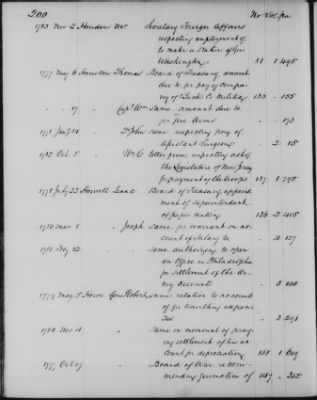 200 No Vol pa
1783 Nov 2 Houdon Mr Secretary Foreign Affairs
respecting employment of
to make a statue of Gen
Washington 81 1 495
1777 May 6 Houston Thomas Board of Treasury, amount
due to for pay of compa
ny of Bucks Co Militia 136 - 155
" 17 Capt Wm Same amount due to
for fire Arms - 173
1778 July 14 Dr John same respecting pay of
Assistant Surgeons - 2 15
1782 Oct 5 Wm C letter from, respecting act of
the Legislature of New Jersey
for payment of the troops 137 1 795
1778 July 22 Howell Isaac Board of Treasury, appoint
ment of superintendent
of paper making 136 2 405
1780 Mar 1 Joseph Same, for warrant on ac
count of Salary to - 4 127
1781 Feby 12 Same, authorizing to open
an Office in Philadelphia
for settlement of the Ar
my accounts
1778 May 5 Howe Gen Robert Same relative to account
of for travelling expen
ses - 2 291
1780 Nov 11 Same on memorial of pray
ing settlement of his ac
count for depreciation 138 1 609
1777 Oct 17 Board of War recom
mending promotion of 147 - 305